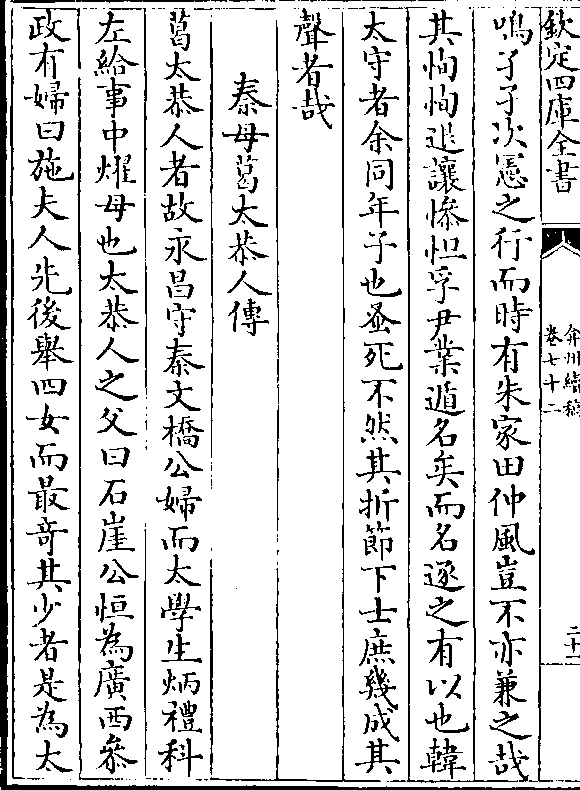 欽定四庫全書
弇州續稿
卷七十二
二十一
鳴子子次憑之行而時有朱家田仲風豈不亦兼之哉
其恂恂退讓慘怛孚尹業遁名矣而名逐之有以也韓
太守者余同年子也蚤死不然其折節下士庶幾成其
聲者哉
秦母葛太恭人傳
葛太恭人者故永昌守秦文橋公婦而太學生炳禮科
左給事中燿母也太恭人之父曰石崖公恒為廣西叅
政有婦曰施夫人先後舉四女而最竒其少者是為太